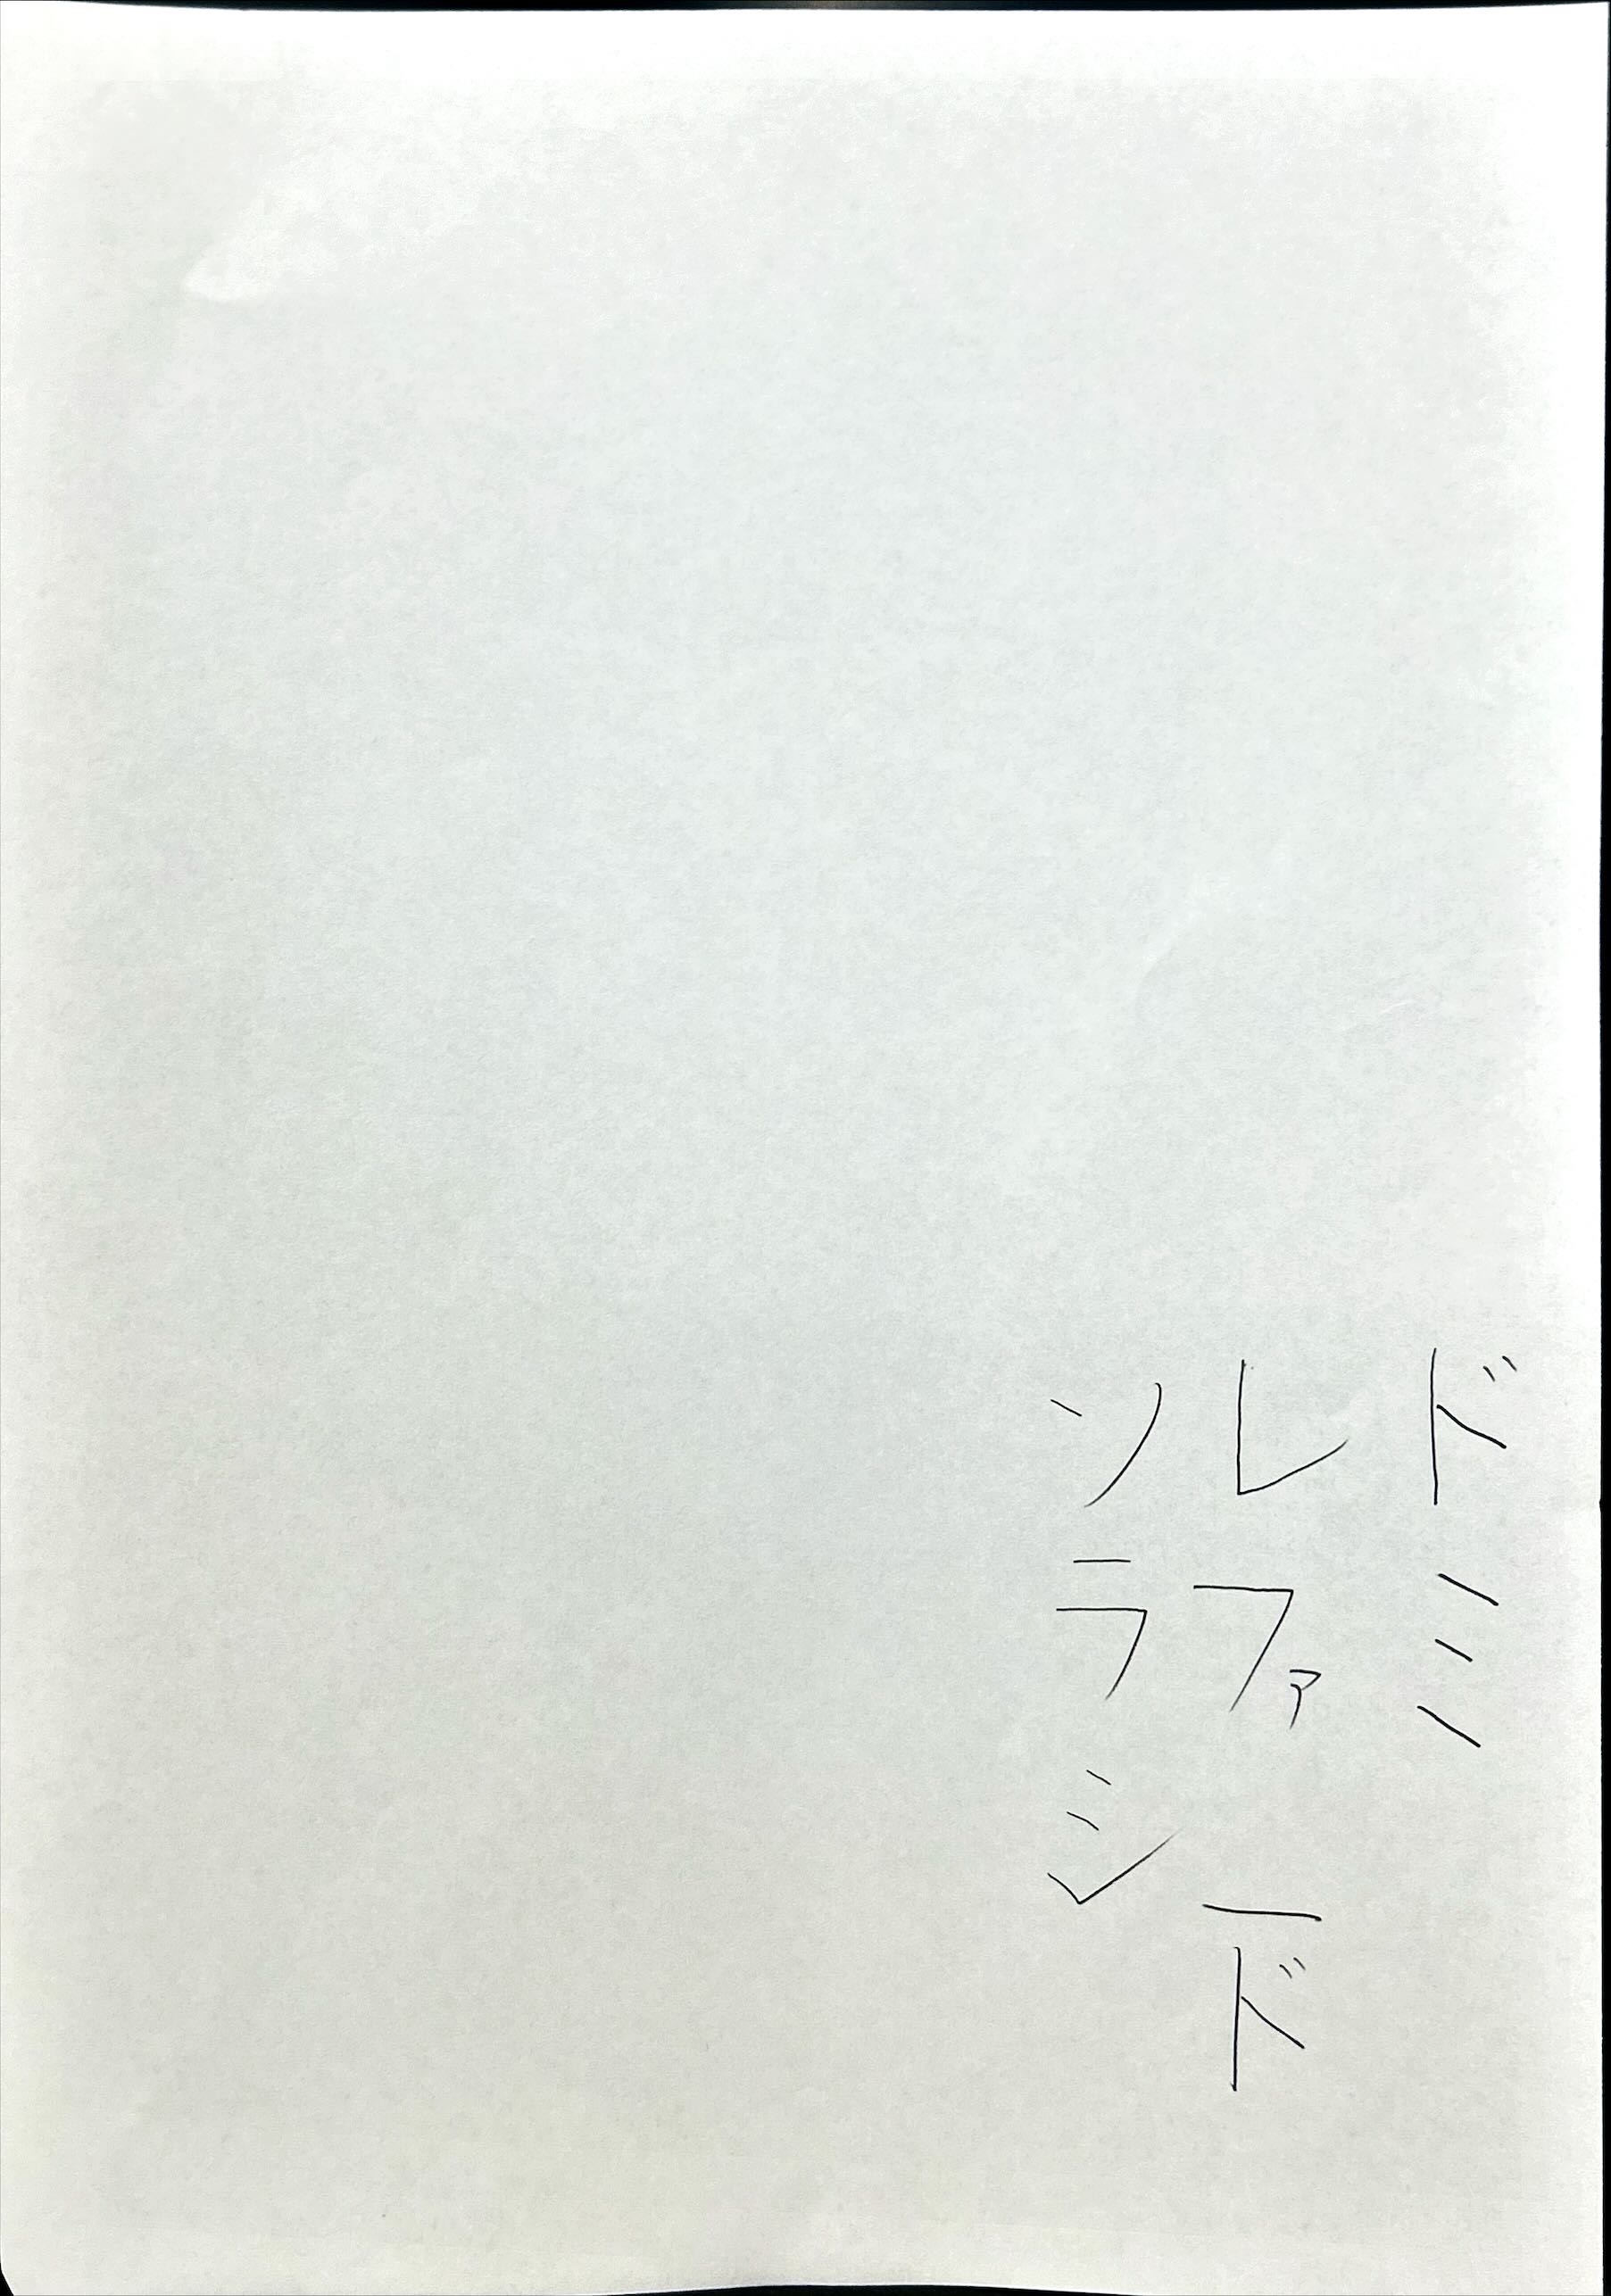 ドミ
レファ 一ド
ソラシ